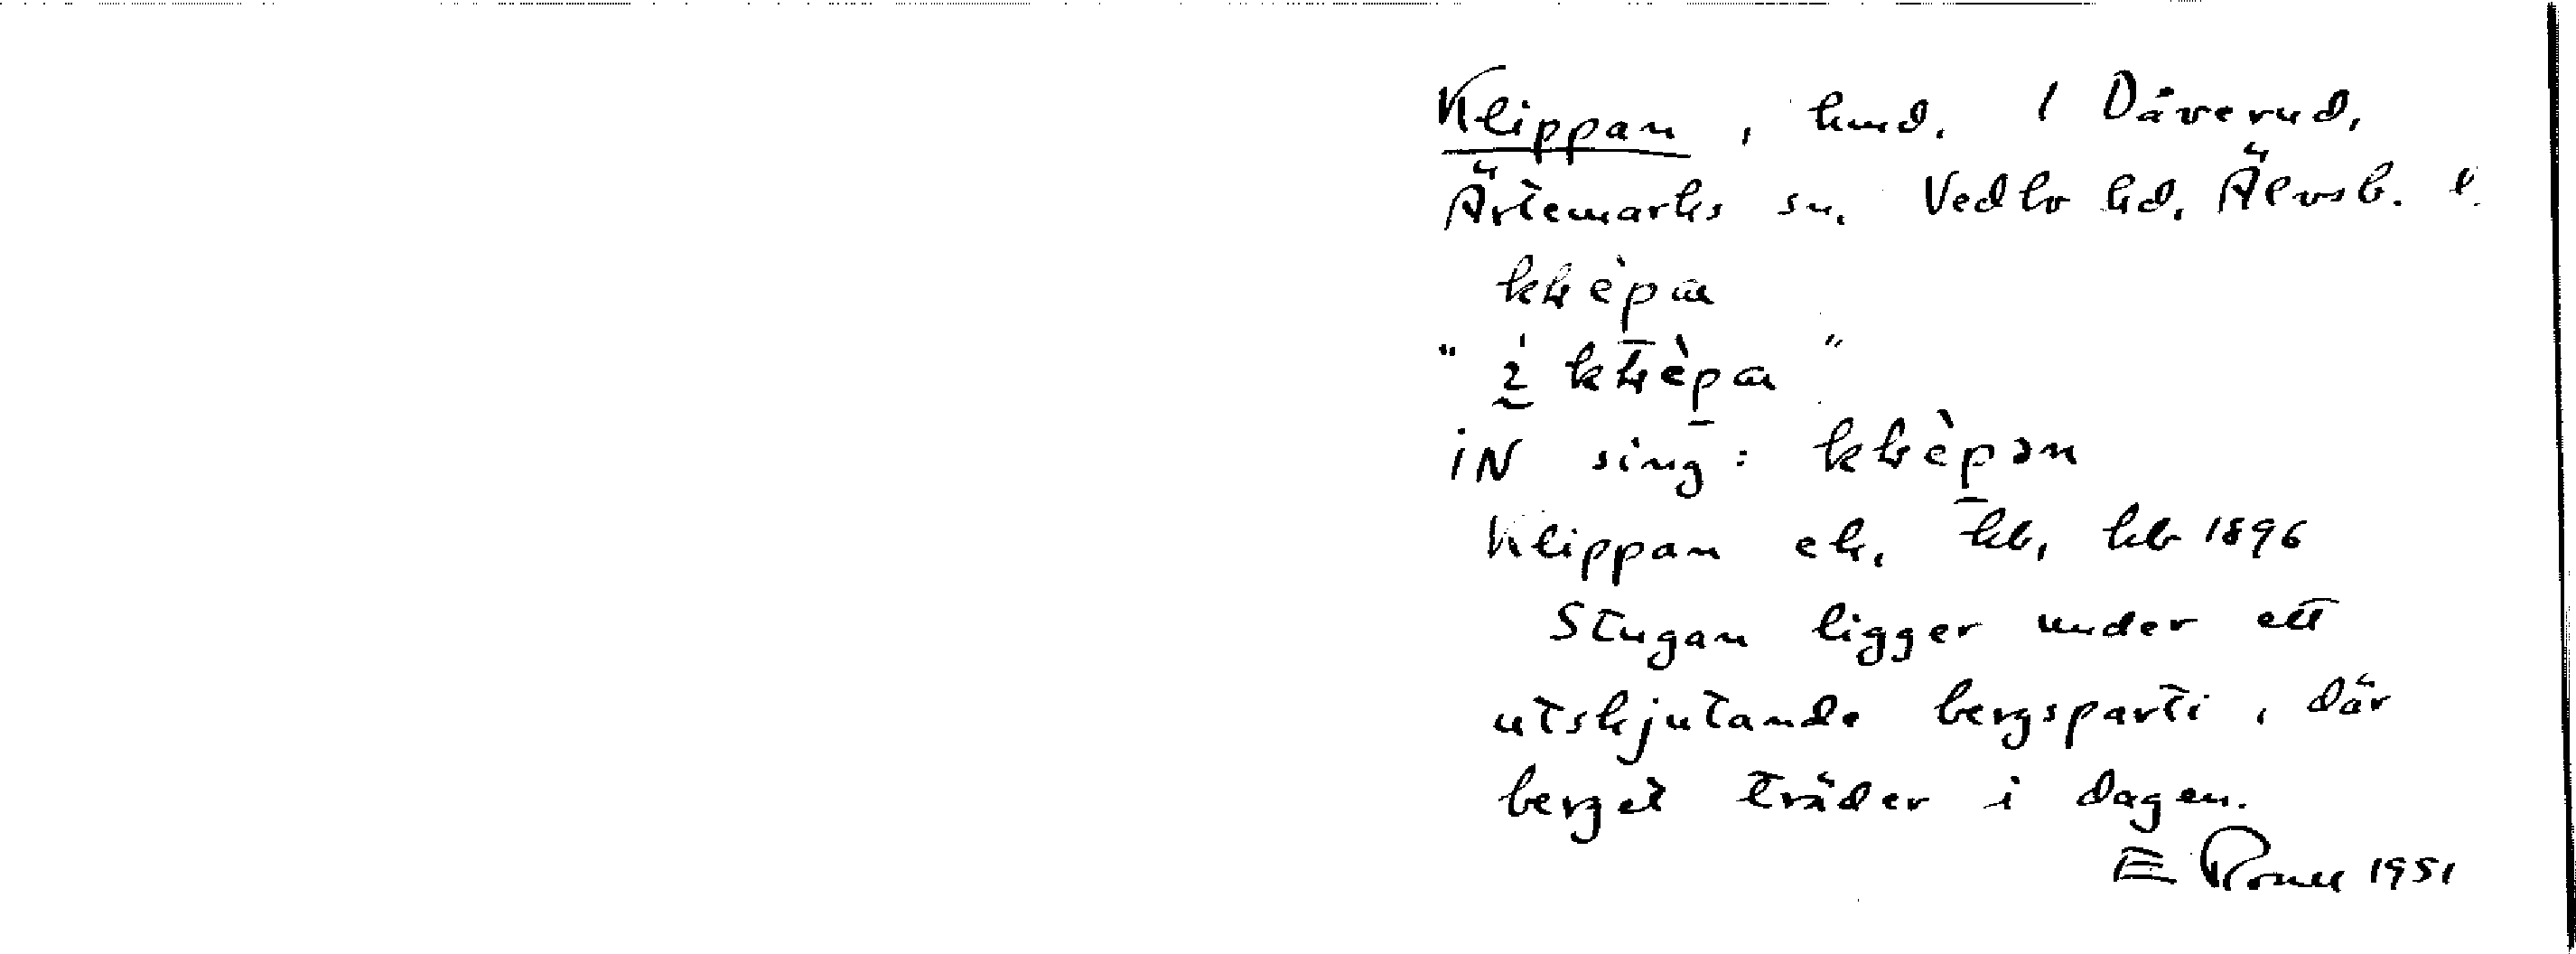 Klippan, hmd. 1 Dåverud,
Ärtemarks sn. Vedbo hd, Älvsb. l.
iN sing:
Klippan ek, kb, kb 1896
Stugan ligger under ett
utskjutande bergsparti, där
berget träder i dagen.
E 1951